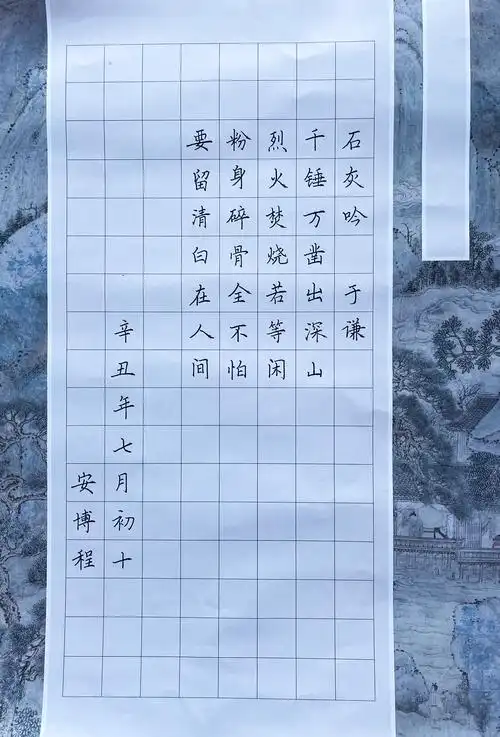 石灰吟 于谦
千锤万凿出深山
烈火焚烧若等闲
粉身碎骨全不怕
要留清白在人间
辛丑年七月初十
安博程